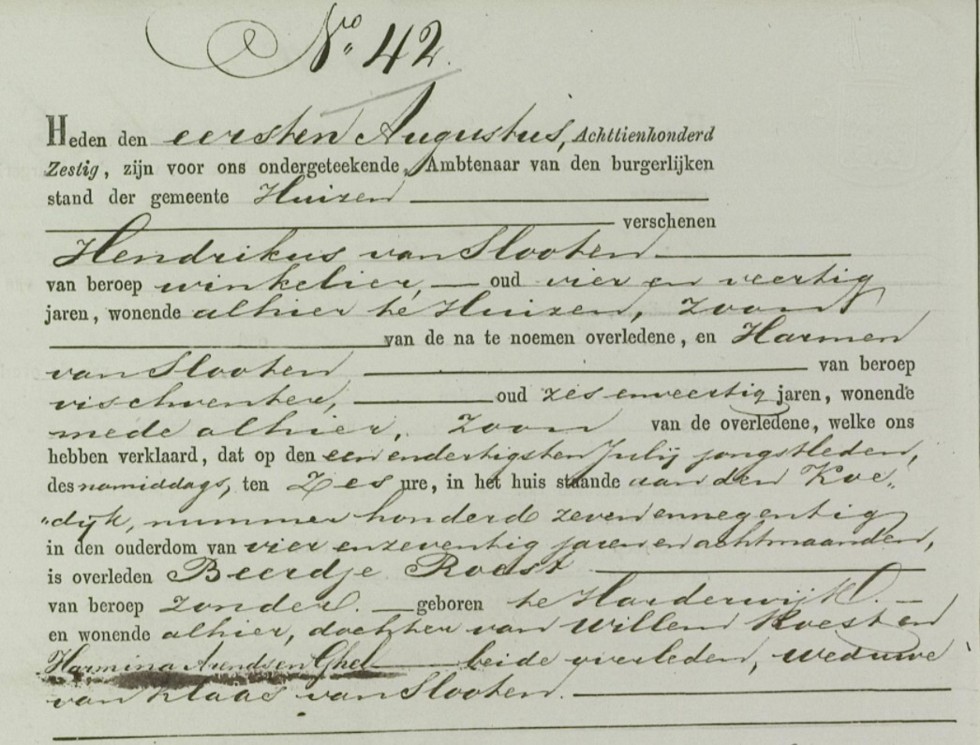 Nro 42.
Heden den eersten Augustus, Achttienhonderd
Zestig, zijn voor ons ondergeteekende, Ambtenaar van den burgerlijken
stand der gemeente Huizen
verschenen
Hendrikus van Slooten
van beroep winkelier, oud vier en veertig
jaren, wonende alhier te Huizen, zoon
van de na te noemen overledene, en Harmen
van Slooten van beroep
vischventer, oud zes enveertig jaren, wonende
mede alhier, zoon van de overledene, welke ons
hebben verklaard, dat op den een endertigsten Julij jongstleden,
des namiddags, ten Zes ure, in het huis staande aan den Koe„
„dijk, nummer honderd zeven ennegentig
in den ouderdom van vier enzeventig jaren en acht maanden,
is overleden Beerdje Roest
van beroep zonder. geboren te Harderwijk.
en wonende alhier, dochter van Willem Roest en
Harmina beide overleden, weduwe
van Klaas van Slooten.